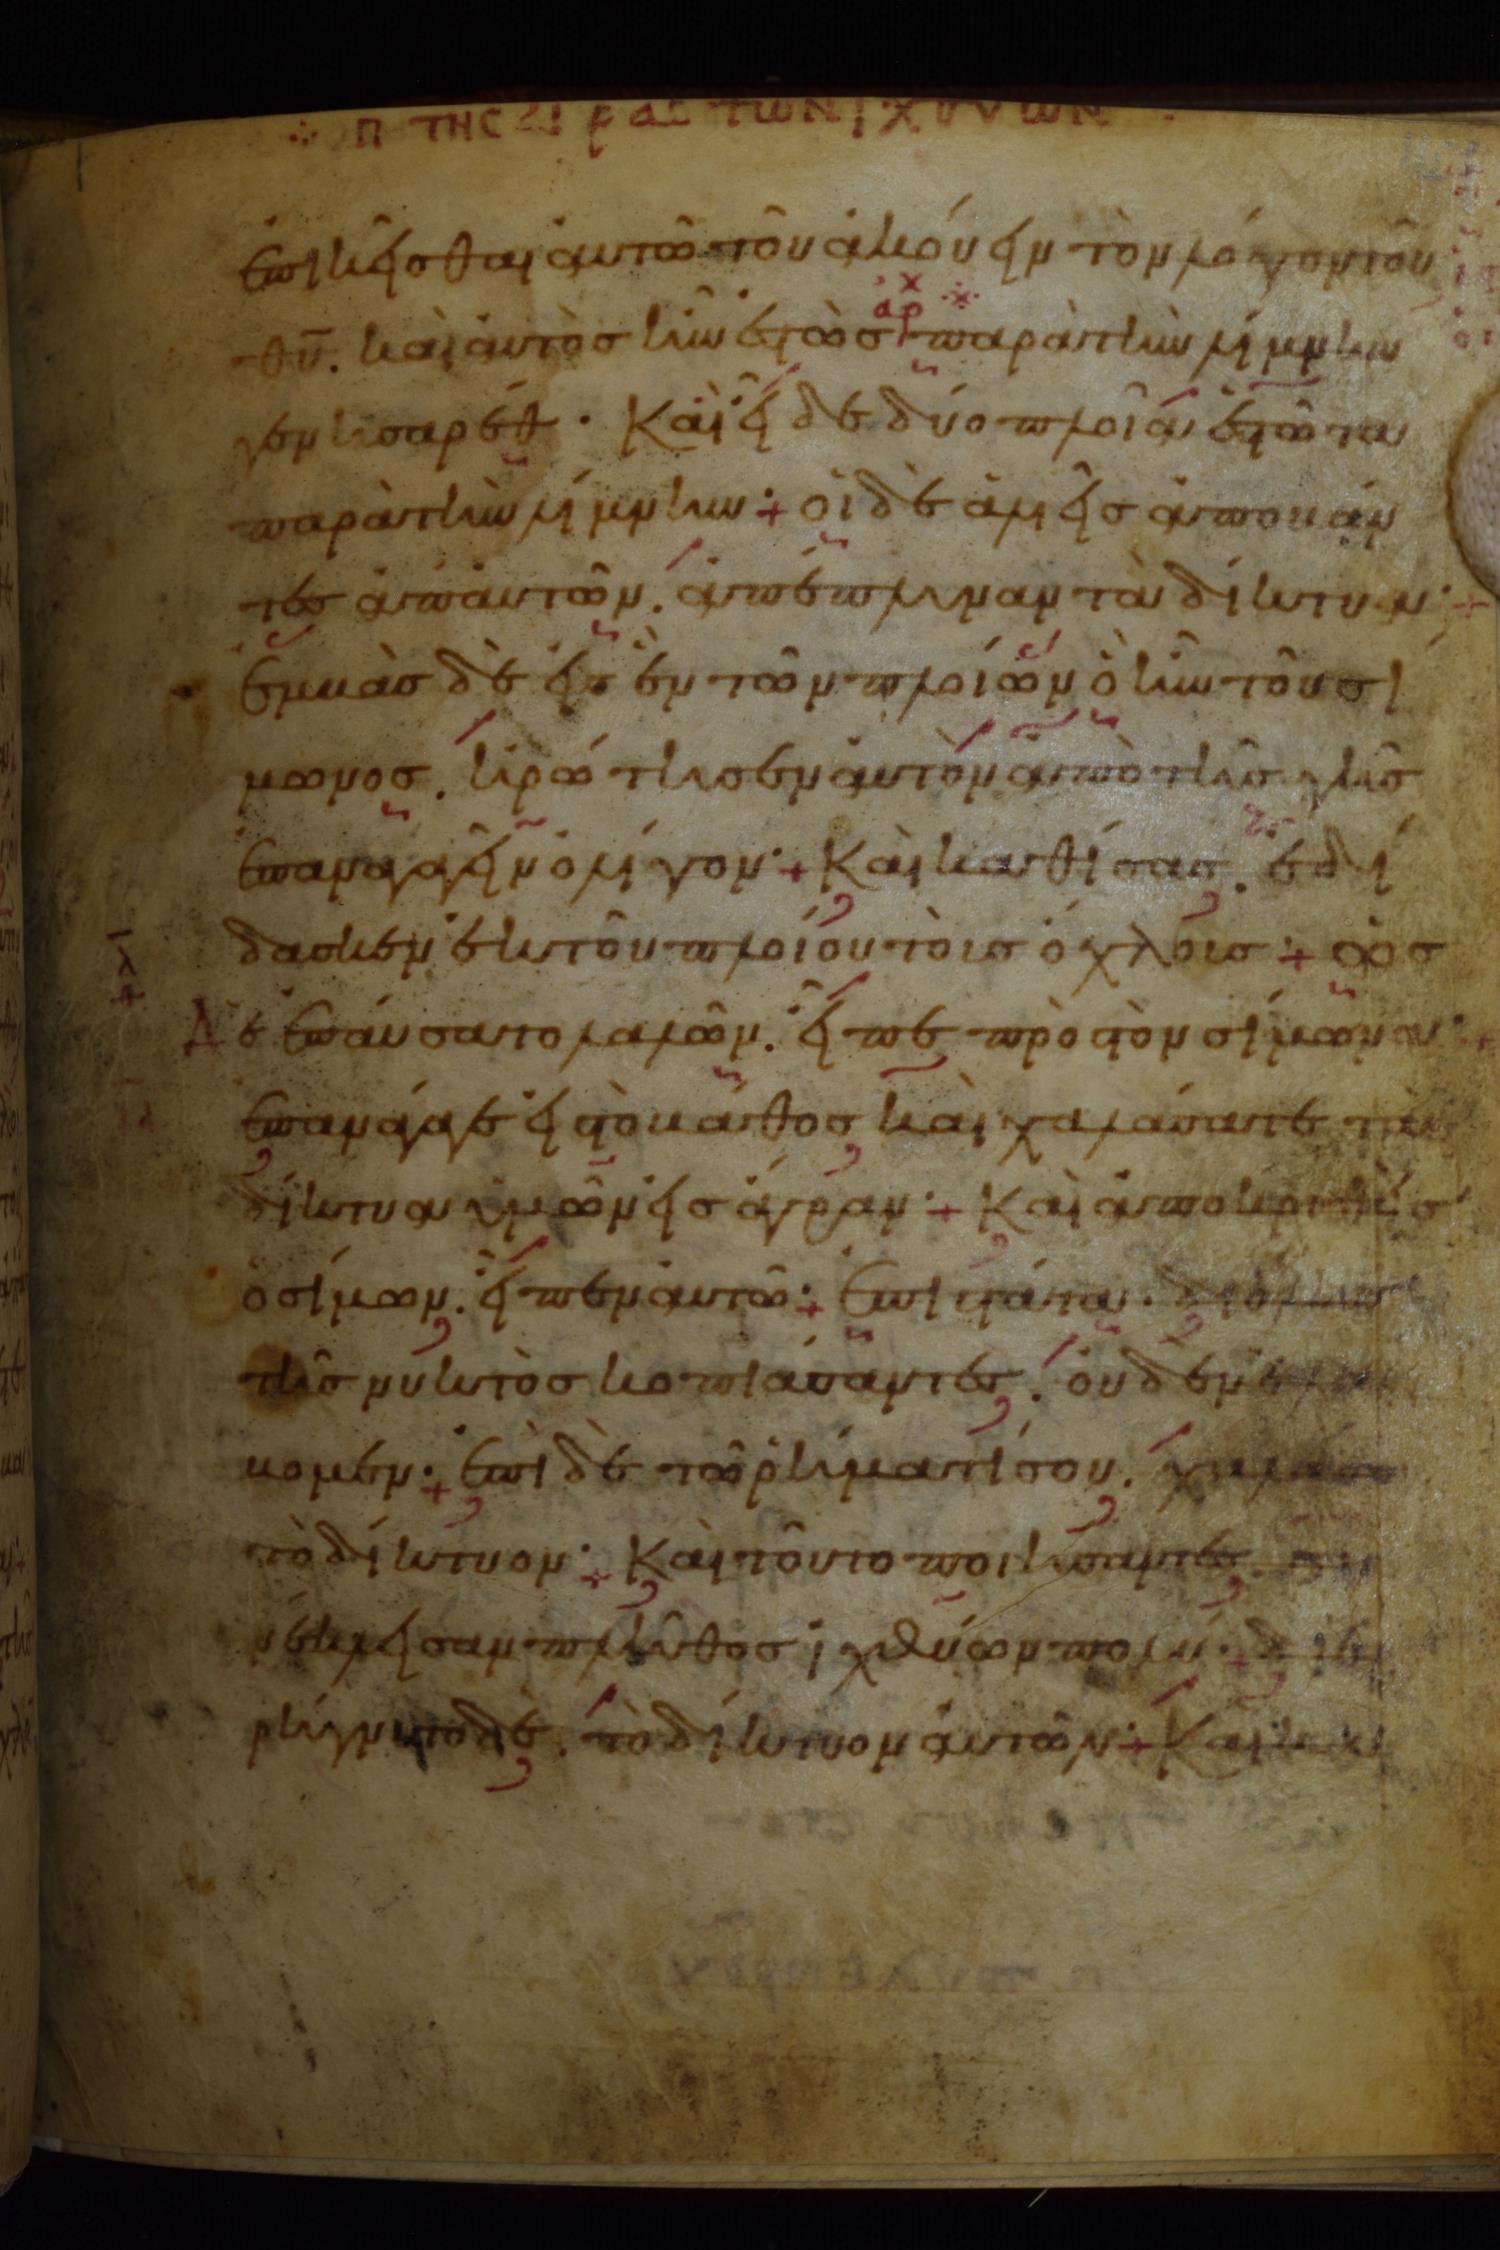 π τῆς ἄγρας τῶν ἰχθύων
ἐπικεῖσθαι αὐτῶ τοῦ ἀκούειν τὸν λόγον τοῦ
θῡ. καὶ αὐτὸς ἦν ἐστὼς παρὰ τὴν λίμνην
ἀρχ
γεννησαρέθ· Καὶ εἶδε δύο πλοῖα ἐστῶτα
παρὰ τὴν λίμνην· οἱ δὲ ἁλιεῖς ἀποβάν
τες ἀπ' ἀυτῶν. ἀπέπλυναν τὰ δίκτυα·
ἐμβὰς δὲ εἰς ἓν τῶν πλοίων ὃ ἦν τοῦ σί
μωνος. ἠρώτησεν αὐτὸν ἀπὸ τῆς γῆς
ἐπαναγαγεῖν ὀλίγον· Καὶ καθίσας. ἐδί
δασκεν ἐκ τοῦ πλοίου τοὶς ὄχλοις· ὡς
δὲ ἐπαύσατο λαλῶν. εἶπε πρὸς τὸν σίμωνα·
ἐπανάγαγε εἰς τὸ βάθος καὶ χαλάσατε τὰ
δίκτυα ὑμῶν εἰς ἄγραν· Καὶ ἀποκριθεὶς
ὁ σίμων. εἶπεν αὐτῶ· ἐπιστάτα· δι' ὅλης
τῆς νυκτὸς κοπιάσαντες. οὐδὲν ἐλά
βομεν· ἐπὶ δὲ τῶ ῥήματί σου. χαλάσω
τὸ δίκτυον· Καὶ τοῦτο ποιήσαντες. συ
νέκλεισαν πλῆθος ἰχθύων πολύ· διε
ρήγνυτο δὲ. τὸ δίκτυον αὐτῶν· Καὶ κα